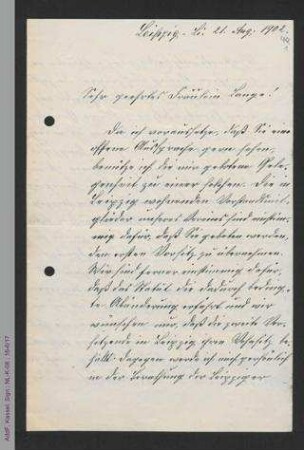 Leipzig-Li. 21. Aug. 1902.
Sehr geehrtes Fräulein Lange!
Da ich voraussetze, daß Sie eine
offene Aussprache gern sehen,
benütze ich die mir gebotene Gele-
genheit zu einer solchen. Die in
Leipzig wohnenden Vorstandsmit-
glieder unseres Vereins sind einstim-
mig dafür, daß Sie gebeten werden,
den ersten Vorsitz zu übernehmen.
Wir sind ferner einstimmig dafür,
daß das Statut die dadurch beding-
te Abänderung erfährt und wir
wünschen nur, daß die zweite Vor-
sitzende in Leipzig ihren Wohnsitz be-
hält. Dagegen werde ich noch persönlich
in der Beratung der Leipziger
AddF, Kassel, Sign.: NL-K-08 ; 16-6/17